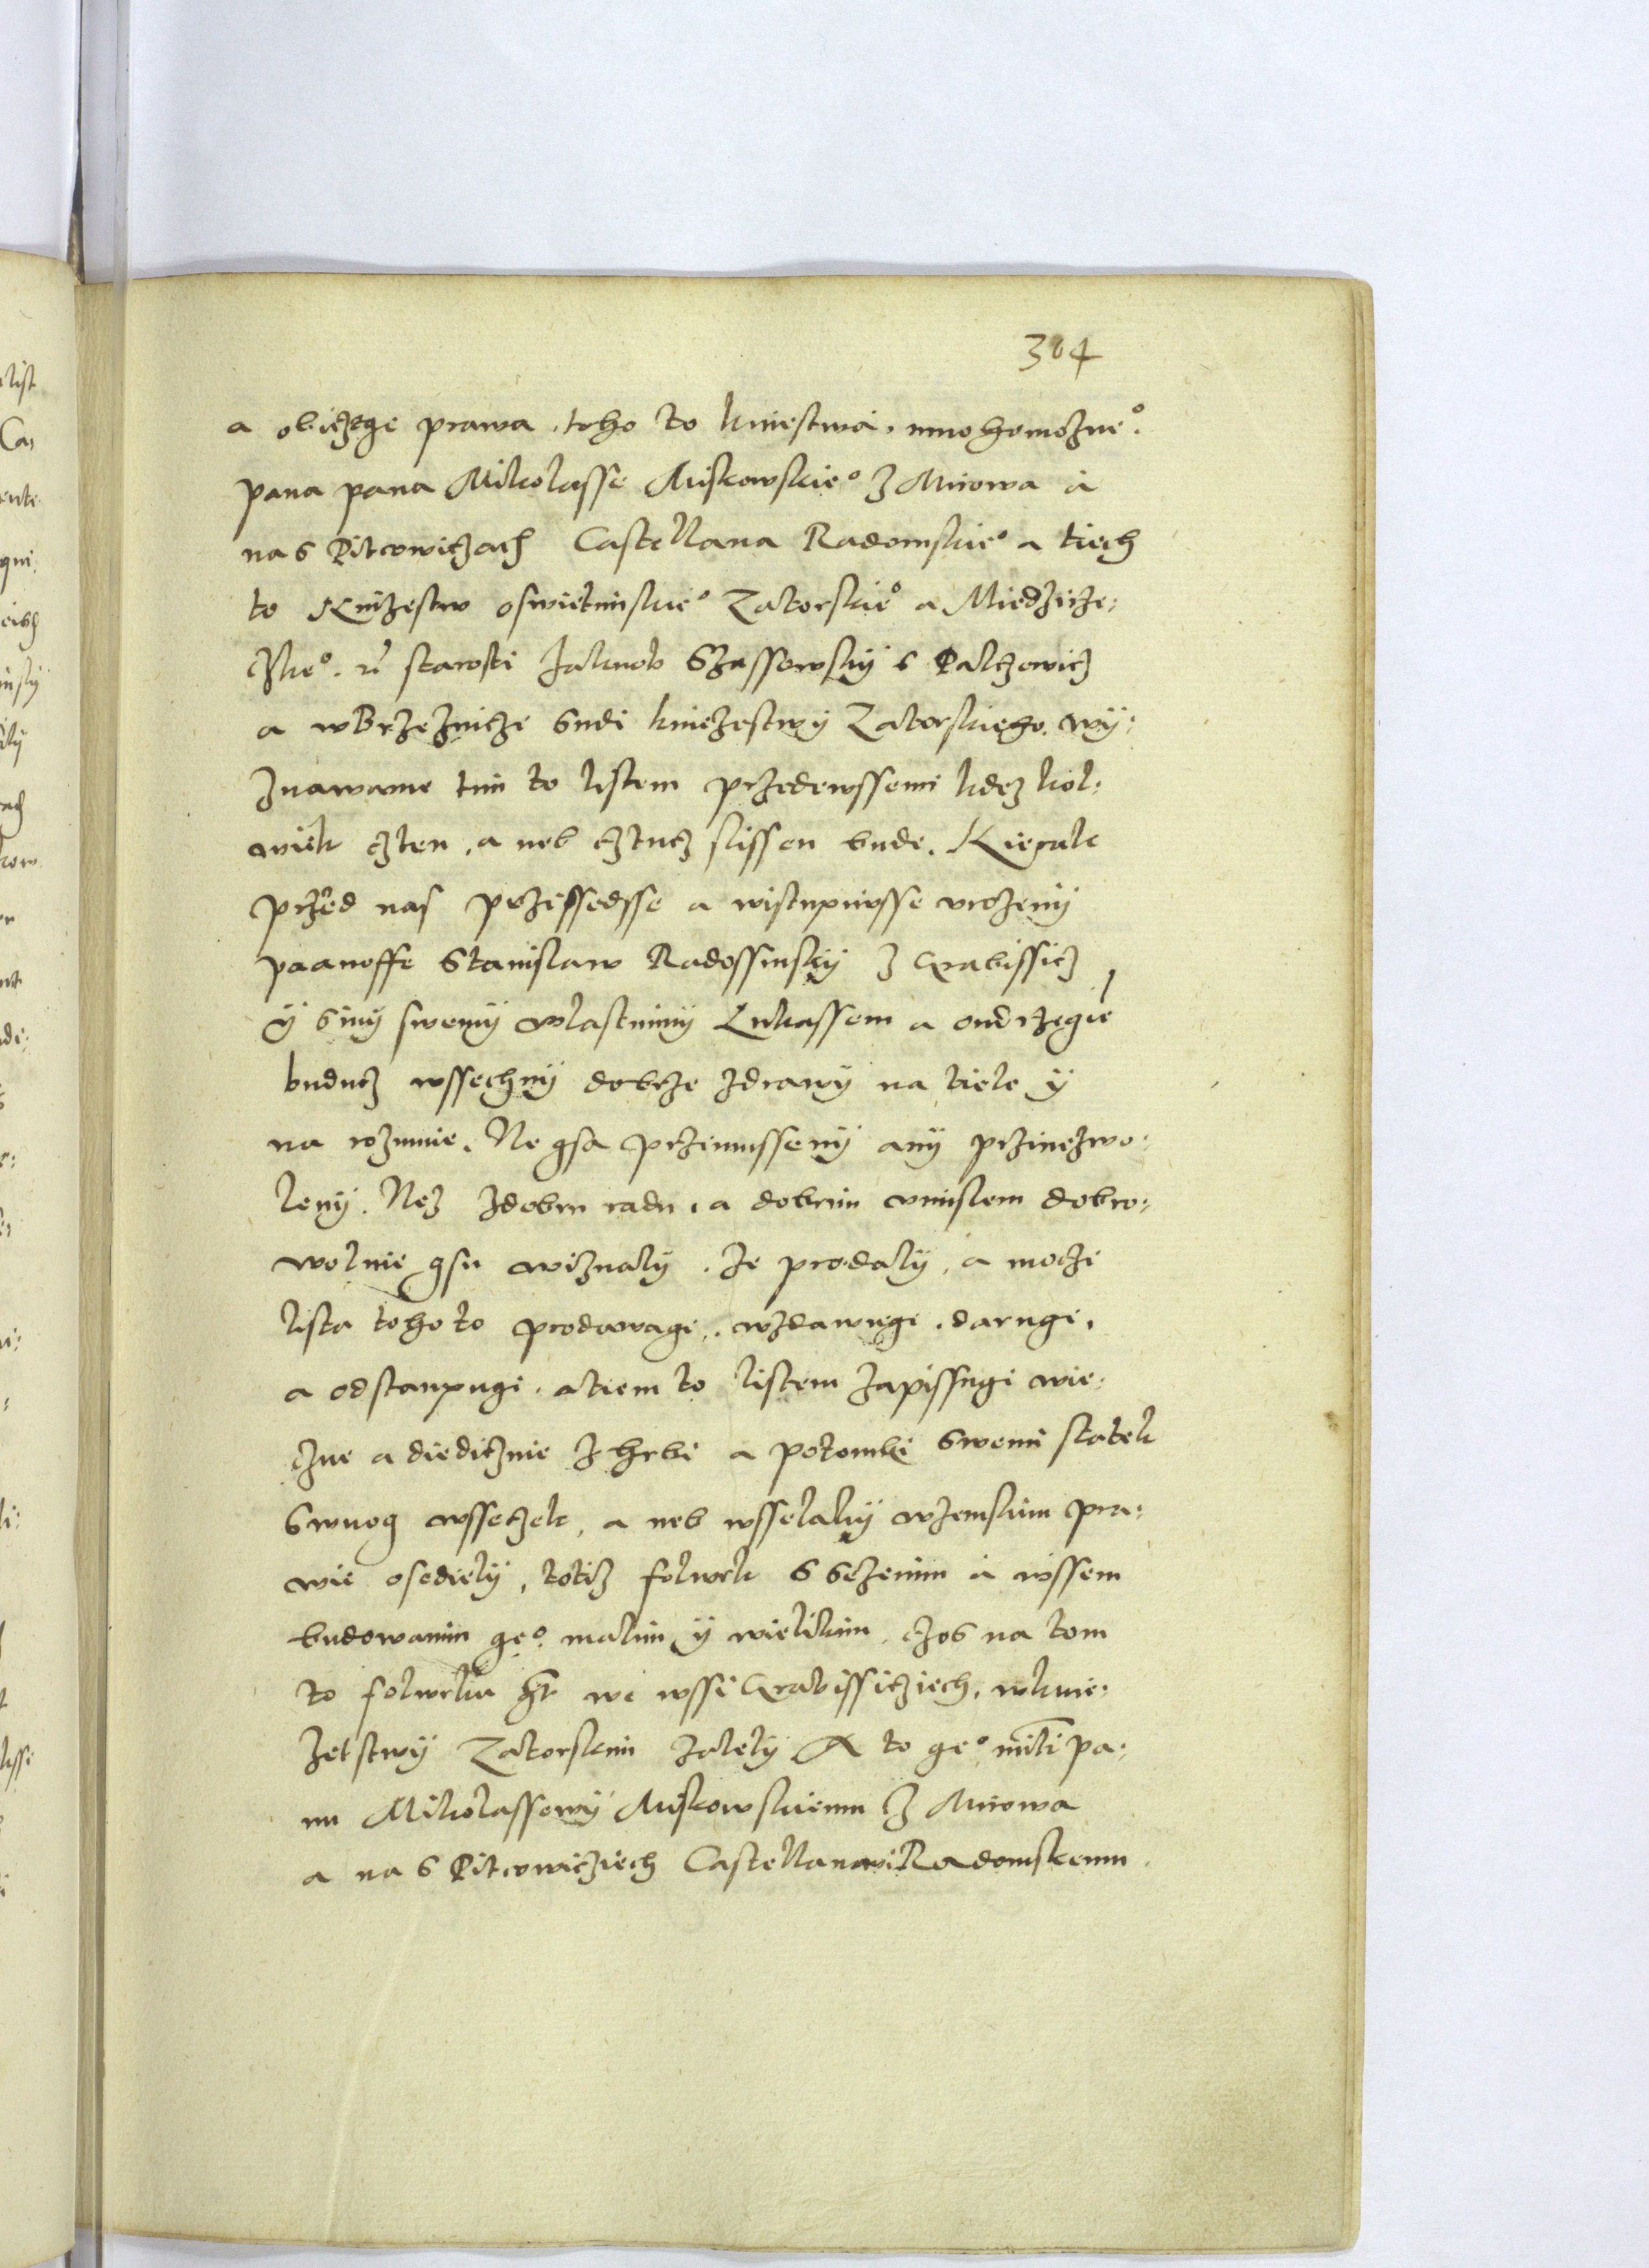 304
a obiczege prawa. toho to kniestwa. mnohomożne°.
pana pana Mikolasse Miskowskie° z Mirowa a
na S Pitkowiczach Castellana Radomskie° a tiech
to Knizestw oswietimskie° Zatorskie° a Miedzicze:
czke°. starosti Jakuob Szassowsky s Palczowicz
a wBrzeznicze Sudi kniezestwy Zatorskiego. wy:
znawame tim to listem przedewssemi kdez kol:
wiek czten, a neb cztucz slissen bude. Kiezale
przed nas przissedsse a wistupiwsse urozeny
paanosse Stanislaw Radossinsky z Grabissicz
y Siny swemy wlastnimy Lukassem a ondrzegie
buducz wssechny dobrze zdrawy na tiele y
na rozumie. Ne gsa przimusseny any prziniezwo:
leny. Nez zdobru radu, a dobrim umislem dobro:
wolnie gsu wiznaly. Ze prodaly, a moczi
lista tohoto prodawagi,. wzdawugi. darugi.
a odstanpugi. atiem to listem zapissugi wie:
czne a diedicznie z hrbi a potomki Swemi statek
Swuog wssiczek, a neb wsselaky wzemskim pra:
wie osediely, totiz folwrk S sezenim a wssem
budowanim ge°. malim y wielikim, czos na tom
to folwrku we wssi Grabissicziech. wknie:
zetstwy Zatorskim zalely A to ge° militi pa:
nu Mikolassowy Miskowskiemu Z Mirowa
a na S Pitkowicziech Castellanowi Radomskemu.